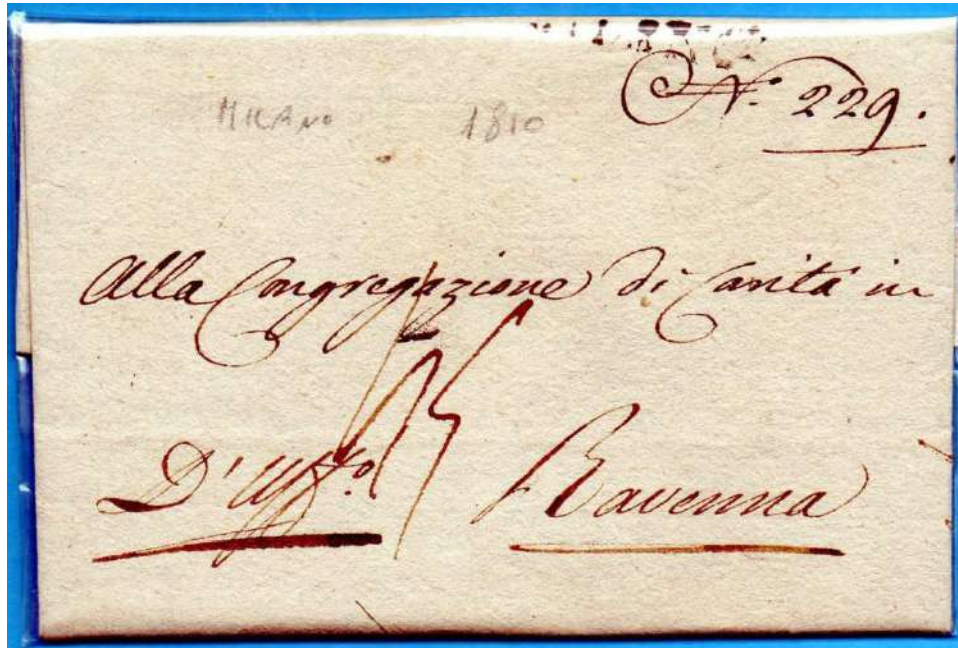 MILANO
N.º 229.
MILANO 1810
Alla Congregazione di Carità in
D'Uff.º Ravenna